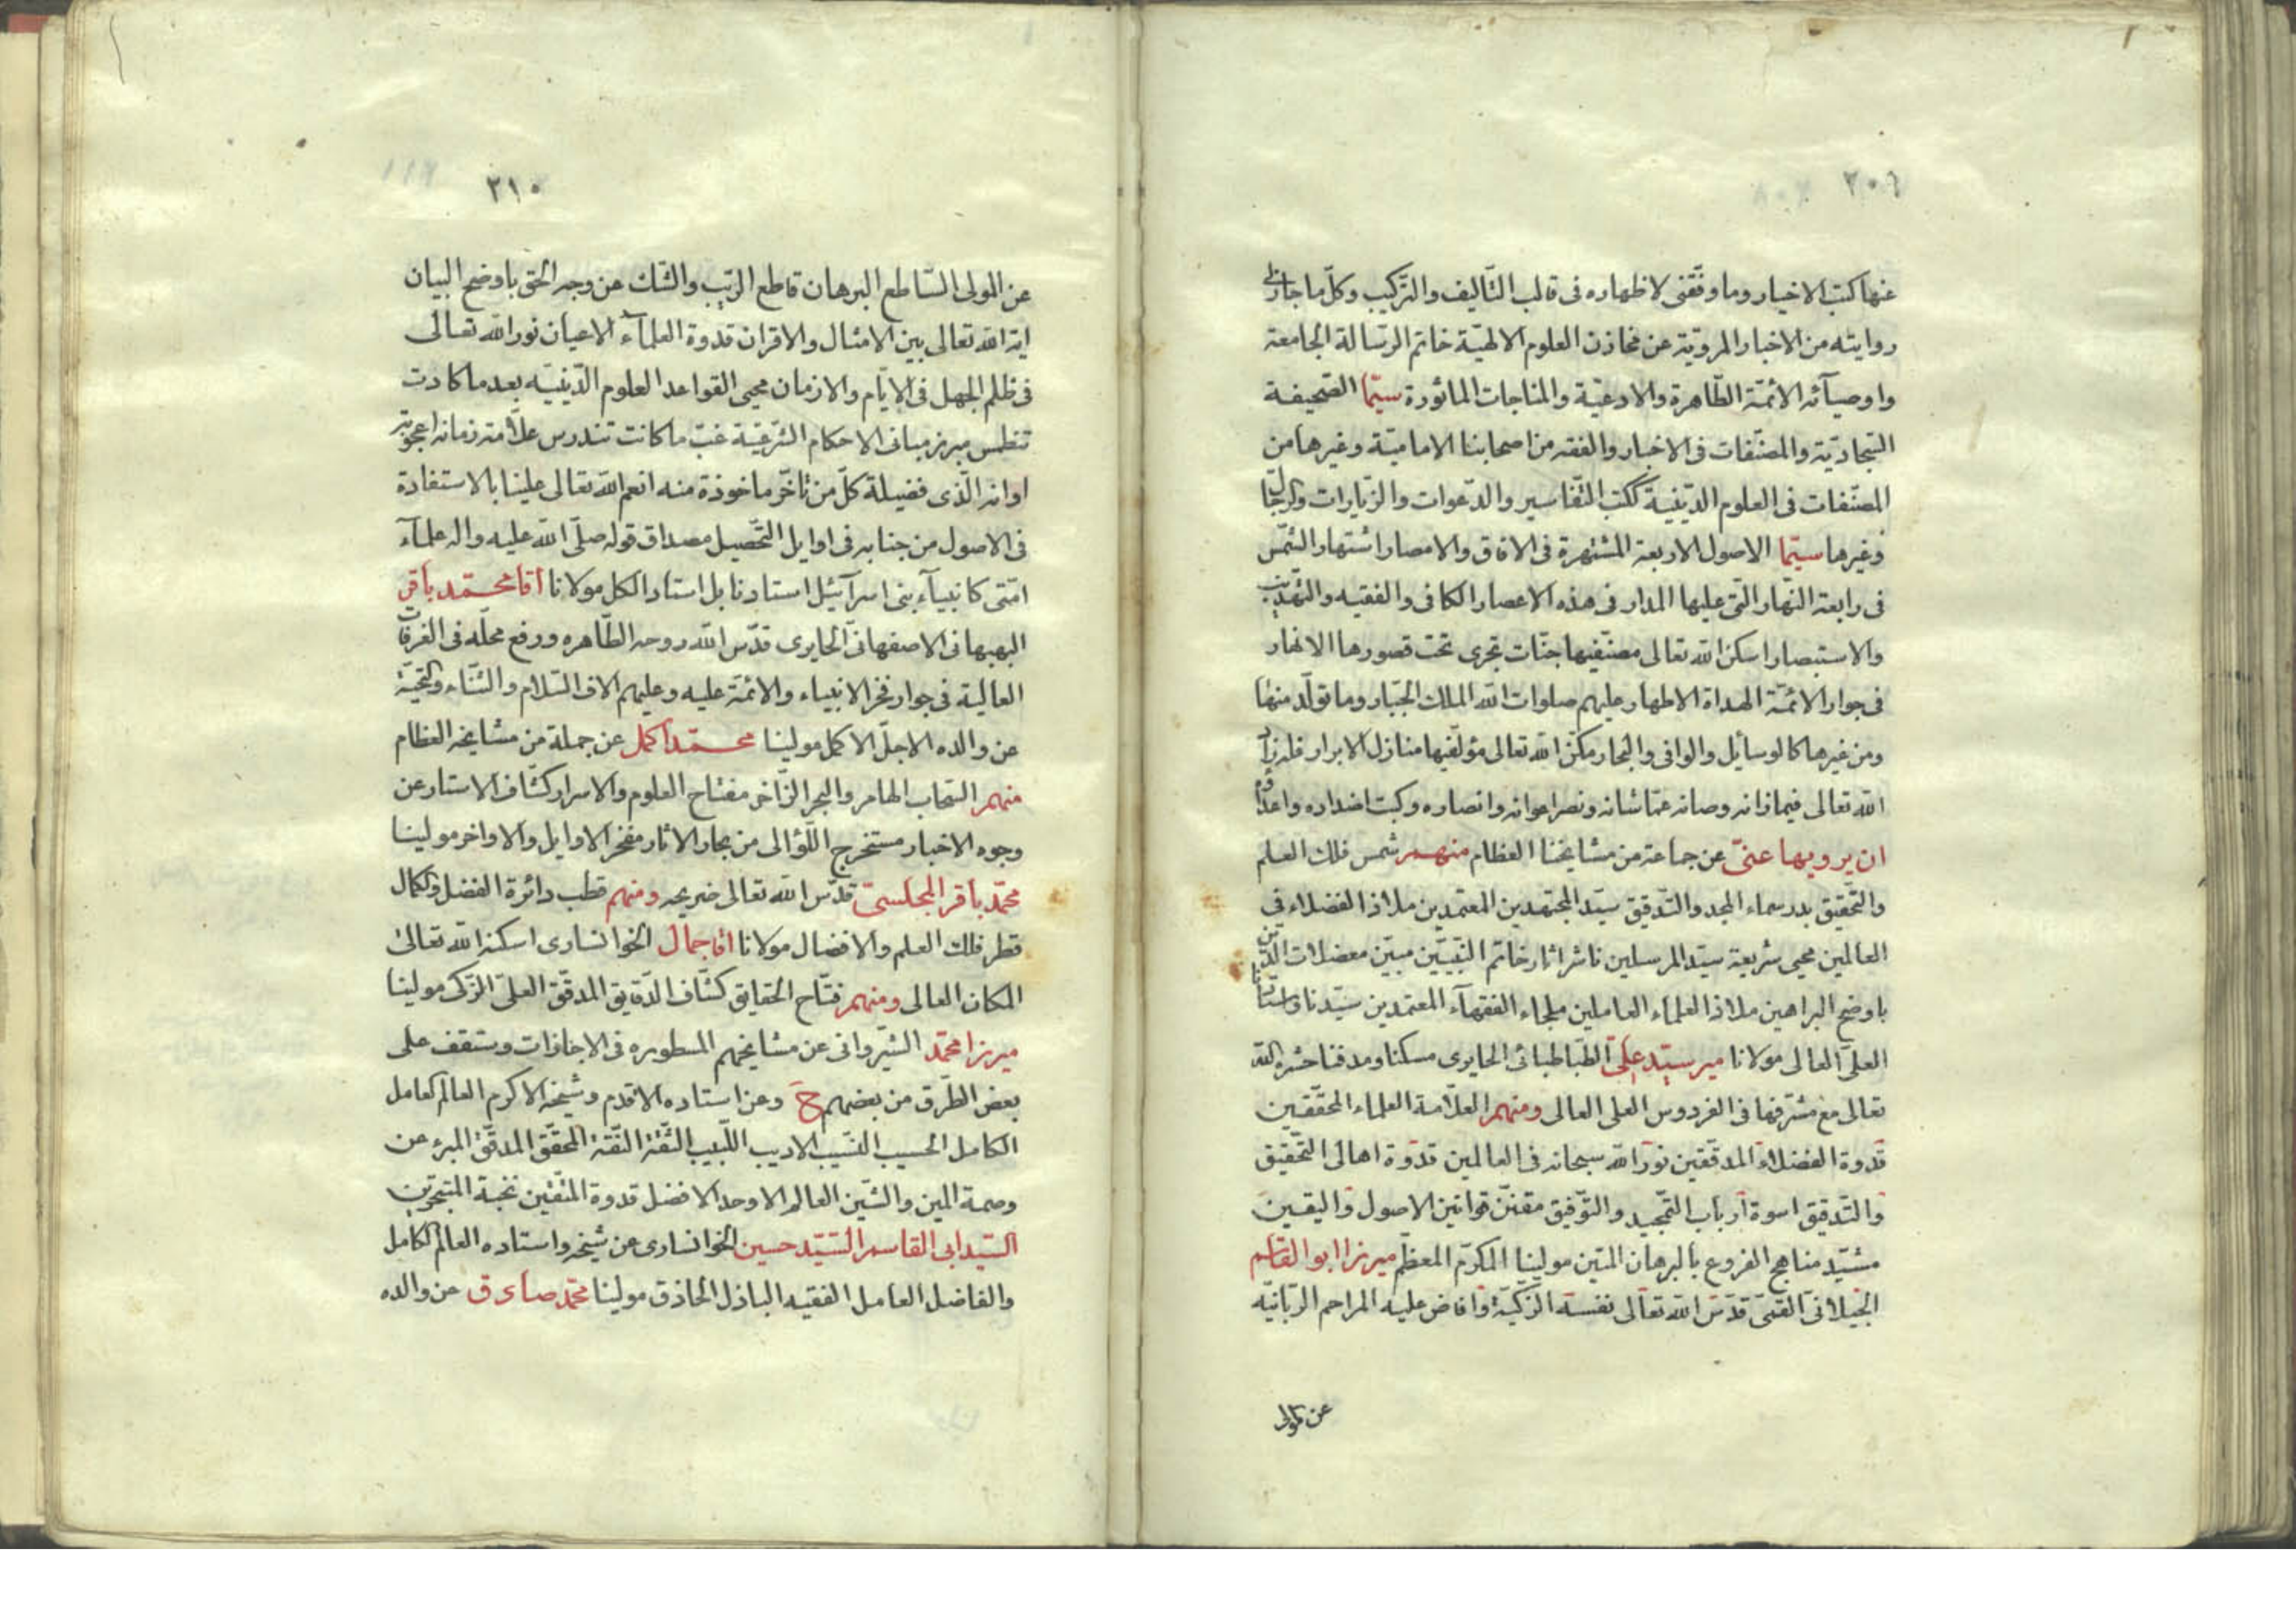 ٢٠٩
عنها كتب الاخيار وما وفقنى لاظهاره فى قالب التّاليف والتركيب وكلّ ما جاز لى
روايته من الاخبار المرويّة عن مخازن العلوم الالهيّة خاتم الرّسالة الجامعة
واوصيآئه الائمّة الطّاهرة والادعيّة والمناجات الماثورة سيّما الصّحيفة
السّجاديّة والمصنّفات فى الاخبار والفقه من اصحابنا الاماميّة وغيرها من
المصنّفات فى العلوم الدّينيّة ككتب التّفاسير والدّعوات والزّيارات والرّجال
وغيرها سيّما الاصول الاربعة المشتهرة فى الافاق والامصار اشتهار الشّمس
فى رابعة النّهار الّتى عليها المدار فى هذه الاعصار الكافى والفقيه والتّهذيب
والاستبصار اسكن الله تعالى مصنّفيها جنّات تجرى تحت قصورها الانهار
فى جوار الائمّة الهداة الاطهار عليهم صلوات الله الملك الجبّار وما تولّد منها
ومن غيرها كالوسائل والوافى والبحار مكّن الله تعالى مؤلّفيها منازل الابرار فله زاد
الله تعالى فيما زانه وصانه عمّا شانه ونصر اعوانه وانصاره وكبت اضداده واعداؤه
ان يرويها عنّى عن جماعة من مشايخنا العظام منهم شمس فلك العلم
والتّحقيق بدر سماء المجد والتّدقيق سيّد المجتهدين المعتمدين ملاذ الفضلاء فى
العالمين محيى شريعة سيّد المرسلين ناشر اثار خاتم النّبيّين مبيّن معضلات الدّين
باوضح البراهين ملاذ العلماء العاملين ملجاء الفقهآء المعتمدين سيّدنا واستادنا
العلىّ العالى مولانا مير سيّد على الطّباطبائى الحايرى مسكنا ومدفنا حشره الله
تعالى مع مشرّفها فى الفردوس العلى العالى ومنهم العلّامة العلماء المحقّقين
قدوة الفضلاء المدقّقين نور الله سبحانه فى العالمين قدوة اهالى التّحقيق
والتّدقيق اسوة ارباب التّمجيد والتّوفيق مقنّن قوانين الاصول واليقين
مشيّد مناهج الفروع بالبرهان المتين مولينا المكرّم المعظّم ميرزا ابو القاسم
الجيلانى القمّى قدّس الله تعالى نفسه الزّكيّة وافاض عليه المراحم الرّبانيّه
عن المولى
٢١٠
عن المولى السّاطع البرهان قاطع الرّيب والشّك عن وجه الحق باوضح البيان
اية الله تعالى بين الامثال والاقران قدوة العلمآء الاعيان نور الله تعالى
فى ظلم الجهل فى الايّام والازمان محيى القواعد العلوم الدّينيّه بعد ما كادت
تنطمس مبرز مبانى الاحكام الشّرعيّة غبّ ما كانت تندرس علّامة زمانه اعجوبة
اوانه الّذى فضيلة كلّ من تاخّر ماخوذة منه انعم الله تعالى علينا بالاستفادة
فى الاصول من جنابه فى اوايل التّحصيل مصداق قوله صلّى الله عليه واله علمآء
امّتى كانبيآء بنى اسرآئيل استادنا بل استاد الكل مولانا اقا محمّد باقر
البهبهانى الاصفهانى الحايرى قدّس الله روحه الطّاهره ورفع محلّه فى الغرفات
العالية فى جوار فخر الانبياء والائمّة عليه وعليهم الاف السّلام والثّناء والتّحيّة
عن والده الاجلّ الاكمل مولينا محمّد اكمل عن جملة من مشايخه العظام
منهم السّحاب الهامر والبحر الزّاخر مفتاح العلوم والاسرار كشّاف الاستار عن
وجوه الاخبار مستخرج اللّؤالى من بحار الاثار مفخر الاوايل والاواخر مولينا
محمّد باقر المجلسىّ قدّس الله تعالى ضريحه ومنهم قطب دائرة الفضل والكمال
قطر فلك العلم والافضال مولانا اقا جمال الخوانسارى اسكنه الله تعالى
المكان العالى ومنهم فتّاح الحقايق كشّاف الدّقايق المدقّق العلىّ الزّكى مولينا
ميرزا محمّد الشّيروانى عن مشايخهم المسطوره فى الاجازات وستقف على
بعض الطّرق من بعضهم ح وعن استاده الاقدم وشيخه الاكرم العالم العامل
الكامل الحسيب النّسيب الاديب اللّبيب الثّقة النّقة المحقّق المدقّق المبرء عن
وصمة المين والشّين العالم الاوحد الافضل قدوة المتّقين نخبة المتبحّرين
السّيد ابى القاسم السّيّد حسين الخوانسارى عن شيخه واستاده العالم الكامل
والفاضل العامل الفقيه الباذل الحاذق مولينا محمّد صادق عن والده